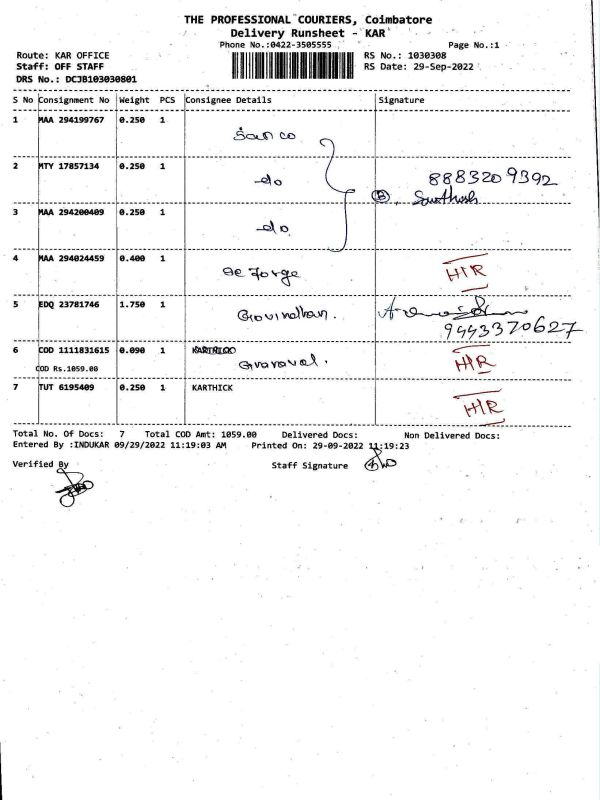 THE PROFESSIONAL COURIERS, Coimbatore
Delivery Runsheet - KAR
Phone No.:0422-3505555 Page No.:1
Route: KAR OFFICE RS No.: 1030308
Staff: OFF STAFF RS Date: 29-Sep-2022
DRS No.: DCJB103030801
S No Consignment No Weight PCS Consignee Details Signature
1 MAA 294199767 0.250 1 Sanco
2 MTY 17857134 0.250 1 do 8883209392
B Santhosh
3 MAA 294200409 0.250 1 do
4 MAA 294024459 0.400 1 De Forge H/R
5 EDQ 23781746 1.750 1 9443370627
6 COD 1111831615 0.090 1 H/R
COD Rs.1059.00
7 TUT 6195409 0.250 1 KARTHICK H/R
Total No. Of Docs: 7 Total COD Amt: 1059.00 Delivered Docs: Non Delivered Docs:
Entered By :INDUKAR 09/29/2022 11:19:03 AM Printed On: 29-09-2022 11:19:23
Verified By Staff Signature